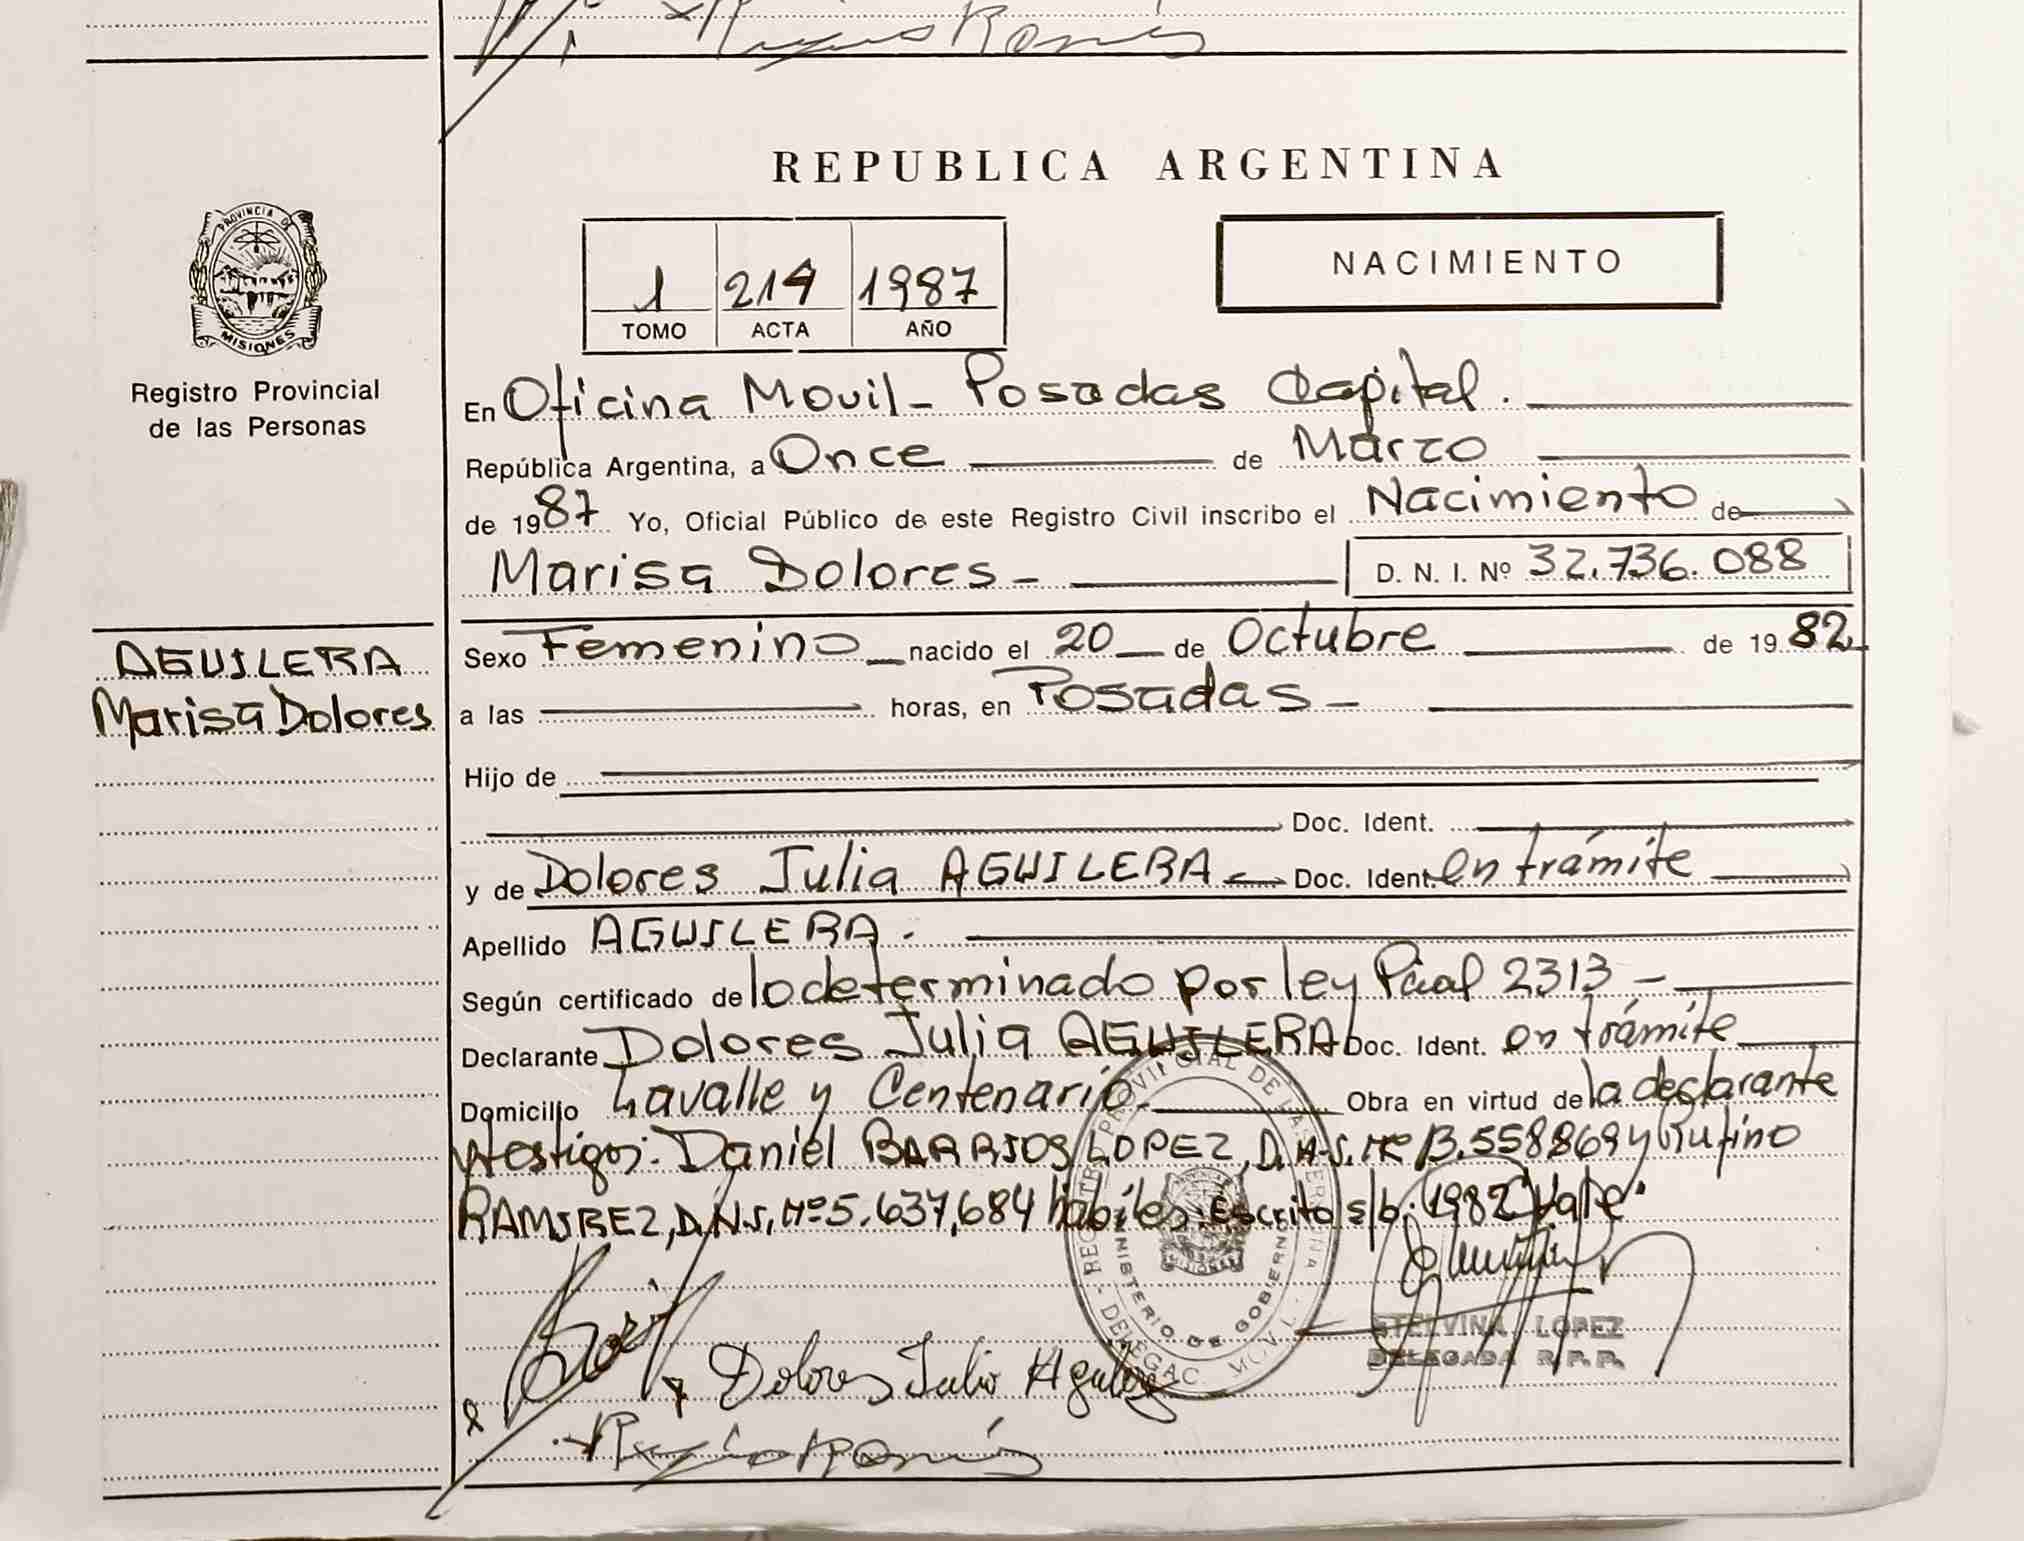 REPUBLICA ARGENTINA
PROVINCIA DE
MISIONES
Registro Provincial
de las Personas
1 214 1987
TOMO ACTA AÑO
NACIMIENTO
En Oficina Movil - Posadas Capital.
República Argentina, a Once de Marzo
de 1987 Yo, Oficial Público de este Registro Civil inscribo el Nacimiento de
Marisa Dolores - D. N. I. Nº 32.736.088
AGUILERA
Marisa Dolores
Sexo Femenino nacido el 20 de Octubre de 1982
a las horas, en Posadas -
Hijo de
Doc. Ident.
y de Dolores Julia AGUILERA Doc. Ident. en trámite
Apellido AGUILERA.
Según certificado de lo determinado por ley Pcial 2313 -
Declarante Dolores Julia AGUILERA Doc. Ident. en trámite
Domicilio Lavalle y Centenario Obra en virtud de la declarante
y testigos: Daniel BARRIOS LOPEZ, D.N.I. Nº 13.558869 y Rufino
RAMIREZ, D.N.I. Nº 5.637,684 hábiles. Escrito s/b: 1982 Vale.
REGISTRO PROVINCIAL DE LAS PERSONAS
MINISTERIO DE GOBIERNO
DELEGAC. MOVIL
MISIONES
ETELVINA LOPEZ
DELEGADA R.P.P.
Dolores Julia Aguilera